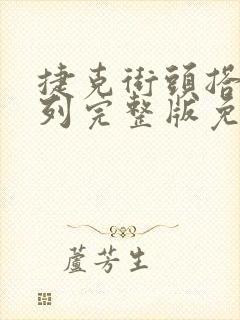 捷克街頭搭
列完整版免
蘆芳生